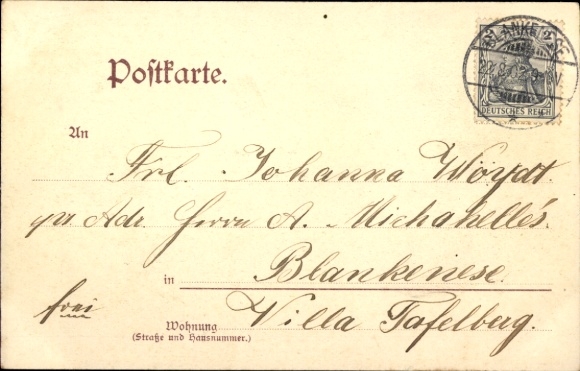 BLANKENESE
Postkarte.
DEUTSCHES REICH
An
Frl. Johanna Woydt.
pr. Adr. Herrn A. Michahelles.
in Blankenese.
frei
Wohnung Villa Tafelberg.
(Straße und Hausnummer.)